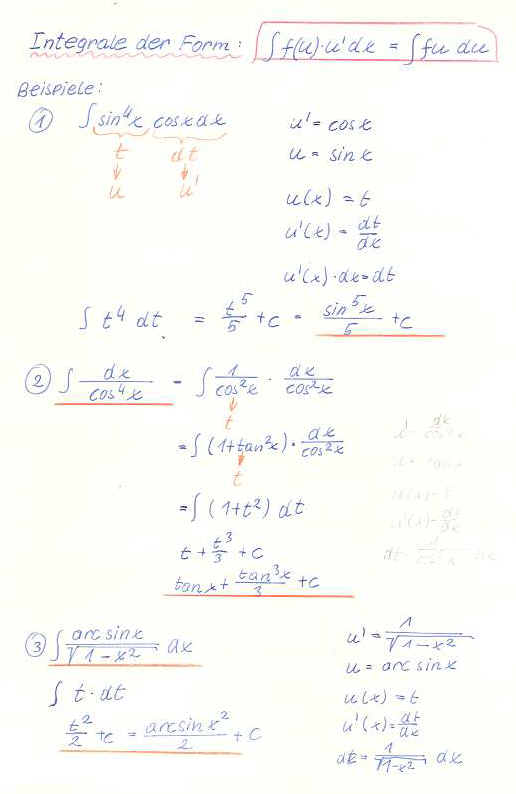 Integrale der Form: ∫ f(u)·u'dx = ∫ fu du
Beispiele:
① ∫ sin⁴x cosx dx
t dt
u u'
u' = cosx
u = sinx
u(x) = t
u'(x) = dt/dx
u'(x)·dx = dt
∫ t⁴ dt = t⁵/5 + c = sin⁵x/5 + c
② ∫ dx/cos⁴x = ∫ 1/cos²x · dx/cos²x
t
= ∫ (1+tan²x) · dx/cos²x
t
= ∫ (1+t²) dt
t + t³/3 + c
tanx + tan³x/3 + c
③ ∫ arcsinx/√(1-x²) dx
∫ t·dt
t²/2 + c = arcsinx²/2 + c
u' = 1/√(1-x²)
u = arcsinx
u(x) = t
u'(x) = dt/dx
dt = 1/√(1-x²) dx